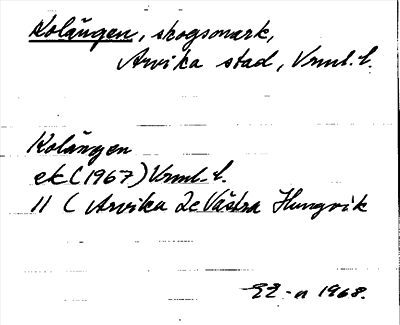 Kolängen, skogsmark,
Arvika stad, Vrml. l.
Kolängen
ek (1967) Vrml. l.
11 ( Arvika 2e Västra Hungvik
EE-n 1968.